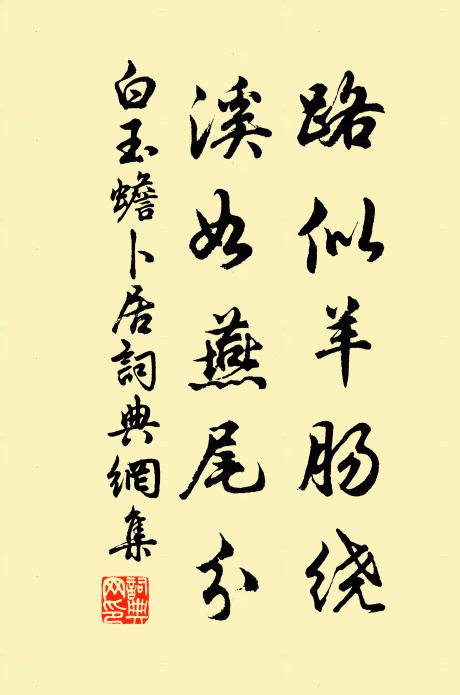 路似羊肠绕
溪如燕尾分
白玉蟾卜居詞典網集
詞典网印